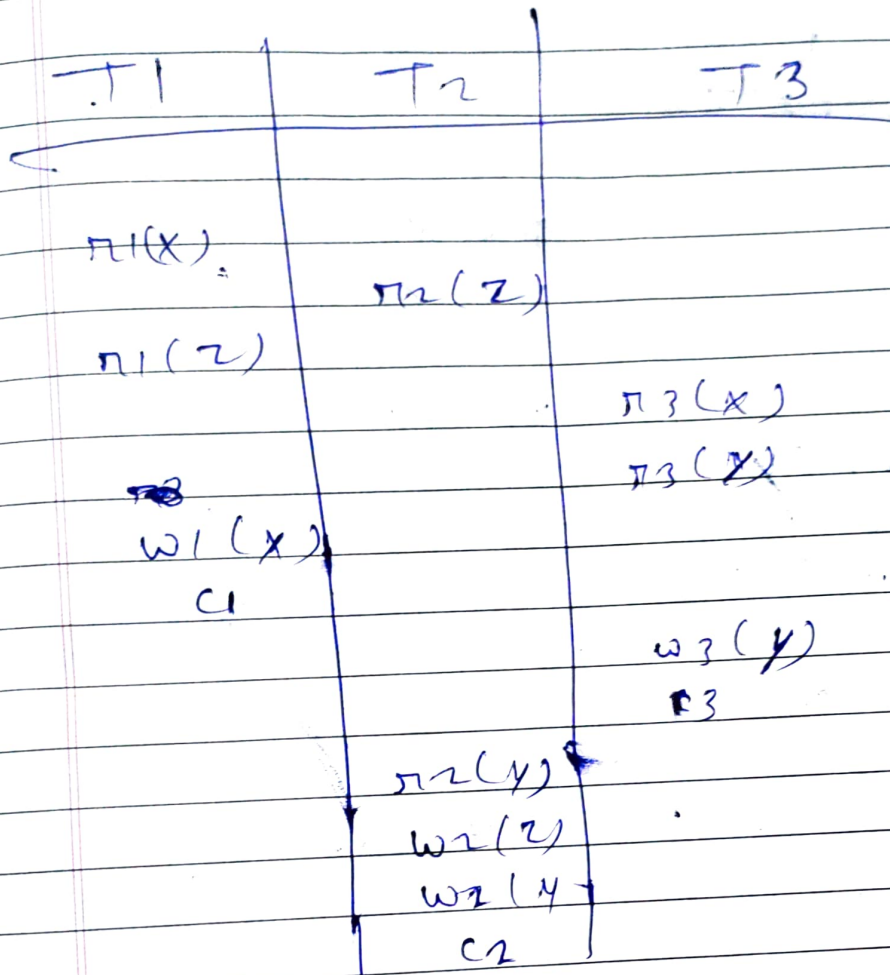 T1 T2 T3
r1(x)
r2(z)
r1(z)
r3(x)
r3(y)
w1(x)
c1
w3(y)
c3
r2(y)
w2(z)
w2(y
c2